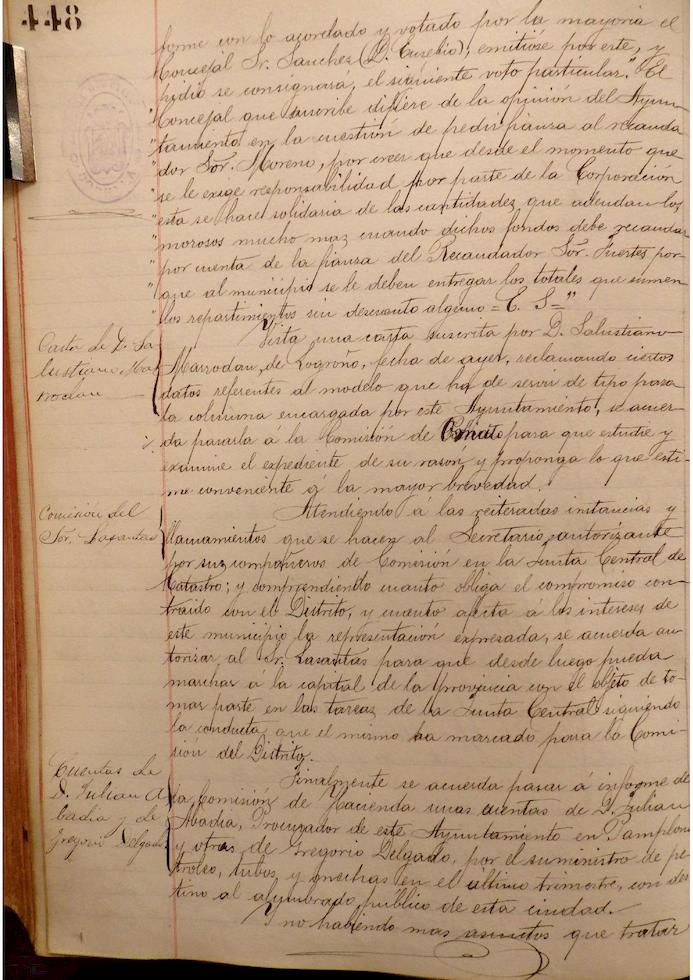 448
forme con lo acordado y votado por la mayoria el
Concejal Sr. Sanchez (D. Eusebio), emitióse por este, y
pidió se consignará, el siguiente voto particular. "El
"Concejal que suscribe difiere de la opinión del Ayun-
"tamiento en la cuestión de pedir fianza al recauda
"dor Sor. Moreno, por creer que desde el momento que
"se le exige responsabilidad por parte de la Corporacion
"esta se hace solidaria de las cantidades que adeudan los
"morosos mucho maz cuando dichos fondos debe recaudar
"por cuenta de la fianza del Recaudador Sor. Fuertes por-
"que al municipio se le deben entregar los totales que sumen
"los repartimientos sin descuento alguno = E. S = "
Carta de D. Sa
lustiano Mar
rodan
Vista una carta suscrita por D. Salustiano
Marrodan, de Logroño, fecha de ayer, reclamando ciertos
datos referentes al modelo que ha de servir de tipo para
la columna encargada por este Ayuntamiento, se acuer-
da pasarla a la Comisión de para que estudie y
examine el expediente de su razón, y proponga lo que esti-
me conveniente á la mayor brevedad.
Comision del
Sor. Lasantas
Atendiendo á las reiteradas instancias y
llamamientos que se hacen al Secretario autorizante
por sus compañeros de Comisión en la Junta Central de
Catastro; y comprendiendo cuanto obliga el compromiso con-
traido con el Distrito, y cuanto afecta a los intereses de
este municipio la representación expresada, se acuerda au-
torizar al Sr. Lasantas para que desde luego pueda
marchar á la capital de la provincia con el objeto de to-
mar parte en las tareas de la Junta Central siguiendo
la conducta que el mismo ha marcado para la Comi-
sión del Distrito.
Cuentas de
D. Julian A
badia y de
Gregorio Delgado
Finalmente se acuerda pasar á informe de
la Comisión de Hacienda unas cuentas de D. Julian
Abadia, Procurador de este Ayuntamiento en Pamplona
y otras de Gregorio Delgado, por el suministro de pe-
troleo, tubos, y mechas en el último trimestre, con des
tino al alumbrado público de esta ciudad.
Y no habiendo mas asuntos que tratar